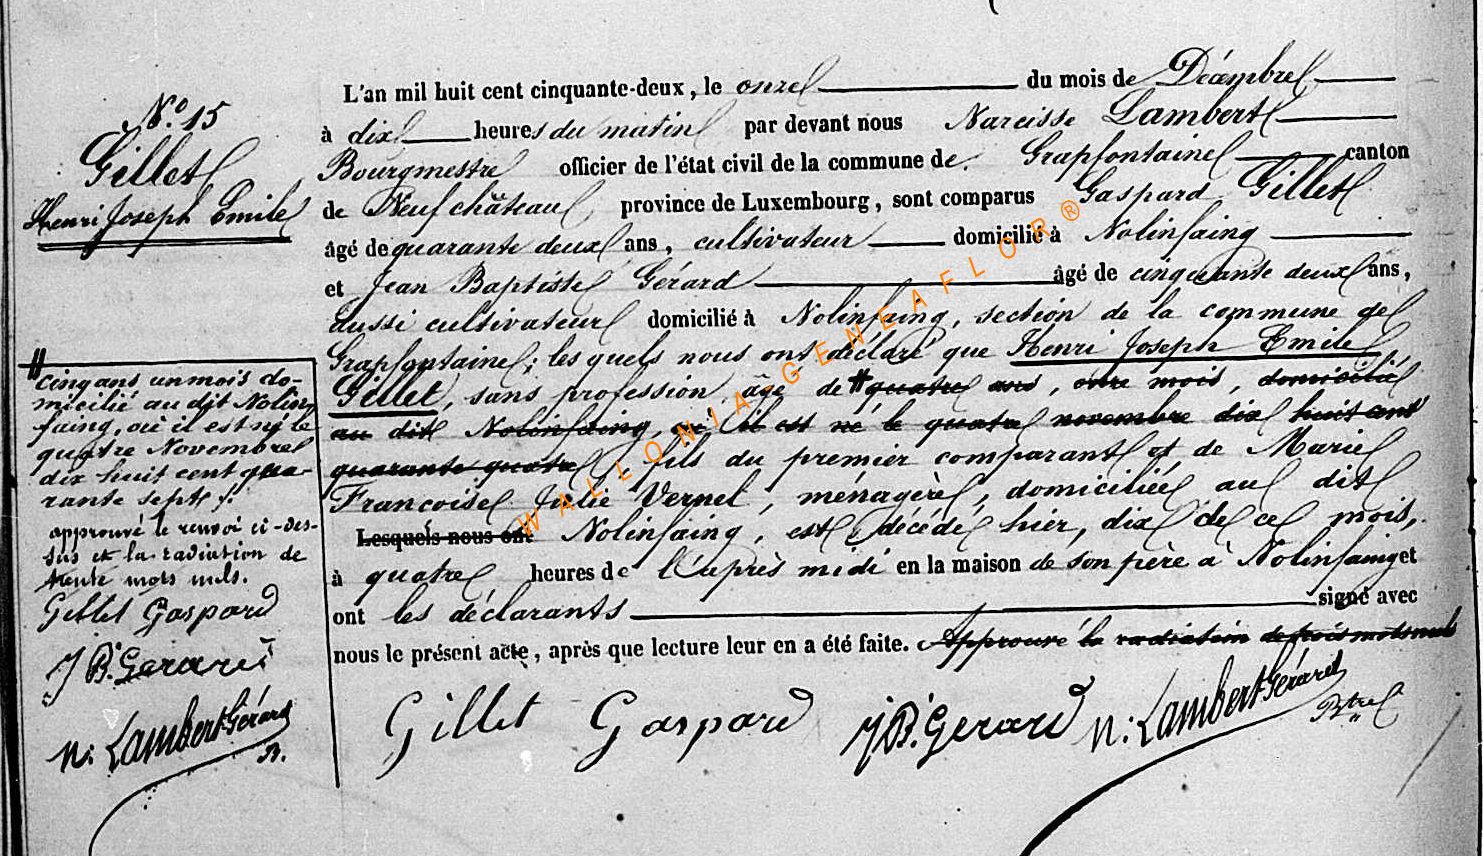 N.° 15
Gillet
Henri Joseph Emile
L'an mil huit cent cinquante-deux, le onze du mois de Décembre
à dix heures du matin par devant nous Narcisse Lambert
Bourgmestre officier de l'état civil de la commune de Grapfontaine canton
de Neufchâteau province de Luxembourg, sont comparus Gaspard Gillet
âgé de quarante deux ans, cultivateur domicilié à Nolinfaing
et Jean Baptiste Gérard âgé de cinquante deux ans,
aussi cultivateur domicilié à Nolinfaing, section de la commune de
Grapfontaine; les quels nous ont déclaré que Henri Joseph Emile
Gillet, sans profession, âgé de # quatre ans, onze mois, domicilié
au dit Nolinfaing, où il est né le quatre novembre dix huit cent
quarante quatre, fils du premier comparant et de Marie
Françoise Julie Vernel, ménagère, domiciliée au dit
Lesquels nous ont Nolinfaing, est décédé hier, dix de ce mois,
à quatre heures de l'après midi en la maison de son père à Nolinfaing et
ont les déclarants signé avec
nous le présent acte, après que lecture leur en a été faite. Approuvé la radiation de trois mots nuls
Gillet Gaspard JB. Gerard N: Lambert Gérard
Btre
#
cinq ans un mois do-
micilié au dit Nolin
faing, où il est né le
quatre Novembre
dix huit cent qua-
rante sept;
approuvé le renvoi ci-des-
sus et la radiation de
trente mots nuls.
Gillet Gaspard
JB. Gerard
N: Lambert Gérard
B.
WALLONIA-GENEAFLOR®